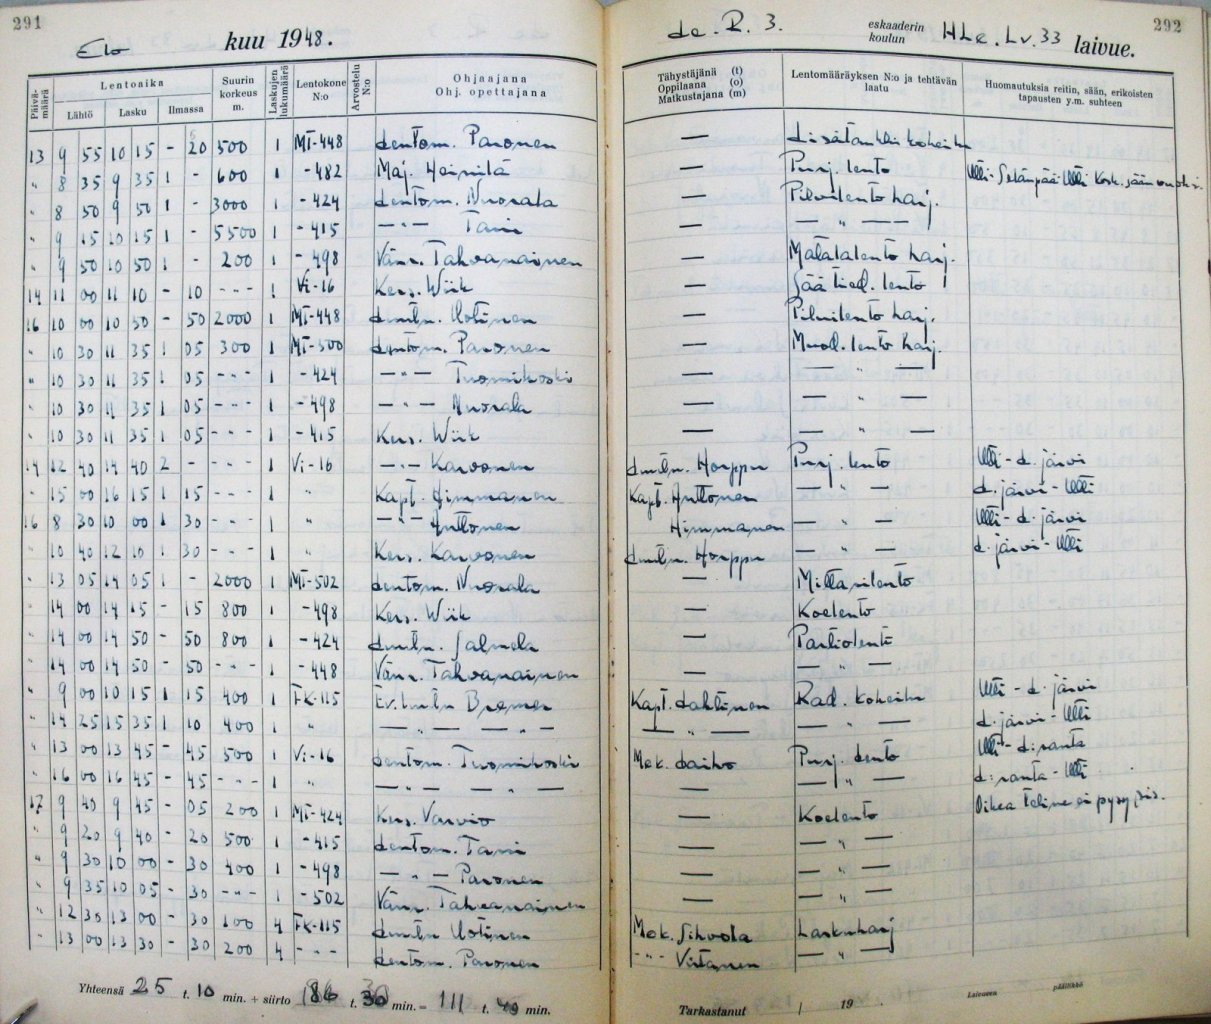 291
Elo kuu 1948.
de. R. 3. eskaaderin koulun HLe. Lv. 33 laivue.
292
Päivämäärä Lentoaika Suurin korkeus m. Laskujen lukumäärä Lentokone N:o Arvostelu N:o Ohjaajana Ohj. opettajana
Lähtö Lasku Ilmassa
Tähystäjänä (t) Oppilaana (o) Matkustajana (m) Lentomääräyksen N:o ja tehtävän laatu Huomautuksia reitin, sään, erikoisten tapausten y.m. suhteen
13 9 55 10 15 - 20 500 1 MT-448 Lentom. Paronen — Lisätankki koheilu
" 8 35 9 35 1 - 600 1 -482 Maj. Heinilä — Purj. lento Utti-Selänpää-Utti
" 8 50 9 50 1 - 3000 1 -424 Lentom. Nuorala — Pilvilento harj.
" 9 15 10 15 1 - 5500 1 -415 —"— Tani — — " —
" 9 50 10 50 1 - 200 1 -498 Vänr. Tahvanainen — Matalalento harj.
14 11 00 11 10 - 10 --- 1 Vi-16 Kers. Wiik — Säätied. lento
16 10 00 10 50 - 50 2000 1 MT-448 Luutn. Uotinen — Pilvilento harj.
" 10 30 11 35 1 05 300 1 MT-500 Lentom. Paronen — Muod. lento harj.
" 10 30 11 35 1 05 -"- 1 -424 —"— Tuomikoski — — " —
" 10 30 11 35 1 05 --- 1 -498 —"— Nuorala — — " —
" 10 30 11 35 1 05 --- 1 -415 Kers. Wiik — — " —
14 12 40 14 40 2 - -"- 1 Vi-16 —"— Karvonen Luutn. Horppu Purj. lento Utti-L. järvi
" 15 00 16 15 1 15 --- 1 " Kapt. Himmanen Kapt. Anttonen — " — L. järvi-Utti
16 8 30 10 00 1 30 -"- 1 " —"— Anttonen Himmanen — " — Utti-L. järvi
" 10 40 12 10 1 30 --- 1 Kers. Karvonen Luutn. Horppu — — L. järvi-Utti
" 13 05 14 05 1 - 2000 1 MT-502 Lentom. Nuorala — Mittarilento
" 14 00 14 15 - 15 800 1 -498 Kers. Wiik — Koelento
" 14 00 14 50 - 50 800 1 -424 Luutn. Salmela — Partiolento
" 14 00 14 50 - 50 -"- 1 -448 Vänr. Tahvanainen — — " —
" 9 00 10 15 1 15 400 1 FK-115 Ev.luutn Bremer Kapt. Lahtinen Rad. koheilu Utti-L. järvi
" 14 25 15 35 1 10 400 1 " — " — — " — — " — — " — L. järvi-Utti
" 13 00 13 45 - 45 500 1 Vi-16 Lentom. Tuomikoski Mek. Laiho Purj. lento Utti-L:ranta
" 16 00 16 45 - 45 -"- 1 " — " — — " — — — " — L:ranta-Utti
17 9 40 9 45 - 05 200 1 MT-424 Kers. Varvio — Koelento Oikea teline ei pysy sis.
" 9 20 9 40 - 20 500 1 -415 Lentom. Tani — — " —
" 9 30 10 00 - 30 400 1 -498 —"— Paronen — — " —
" 9 35 10 05 - 30 -"- 1 -502 Vänr. Tahvanainen — — " —
" 12 30 13 00 - 30 100 4 FK-115 Luutn Uotinen Mek. Sihvola Laskuharj
" 13 00 13 30 - 30 200 4 --- Lentom. Paronen -"- Virtanen — " —
Yhteensä 25 t. 10 min. + siirto 186 t. 30 min. = 111 t. 40 min.
Tarkastanut / 19 . Laivueen päällikkö